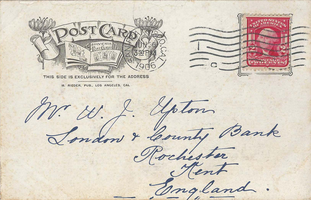 POST CARD
THIS SIDE IS EXCLUSIVELY FOR THE ADDRESS
M. RIEDER, PUB., LOS ANGELES, CAL.
CAL.
JUN
1906
2
Mr W. J. Upton
London & County Bank
Rochester
Kent
England.